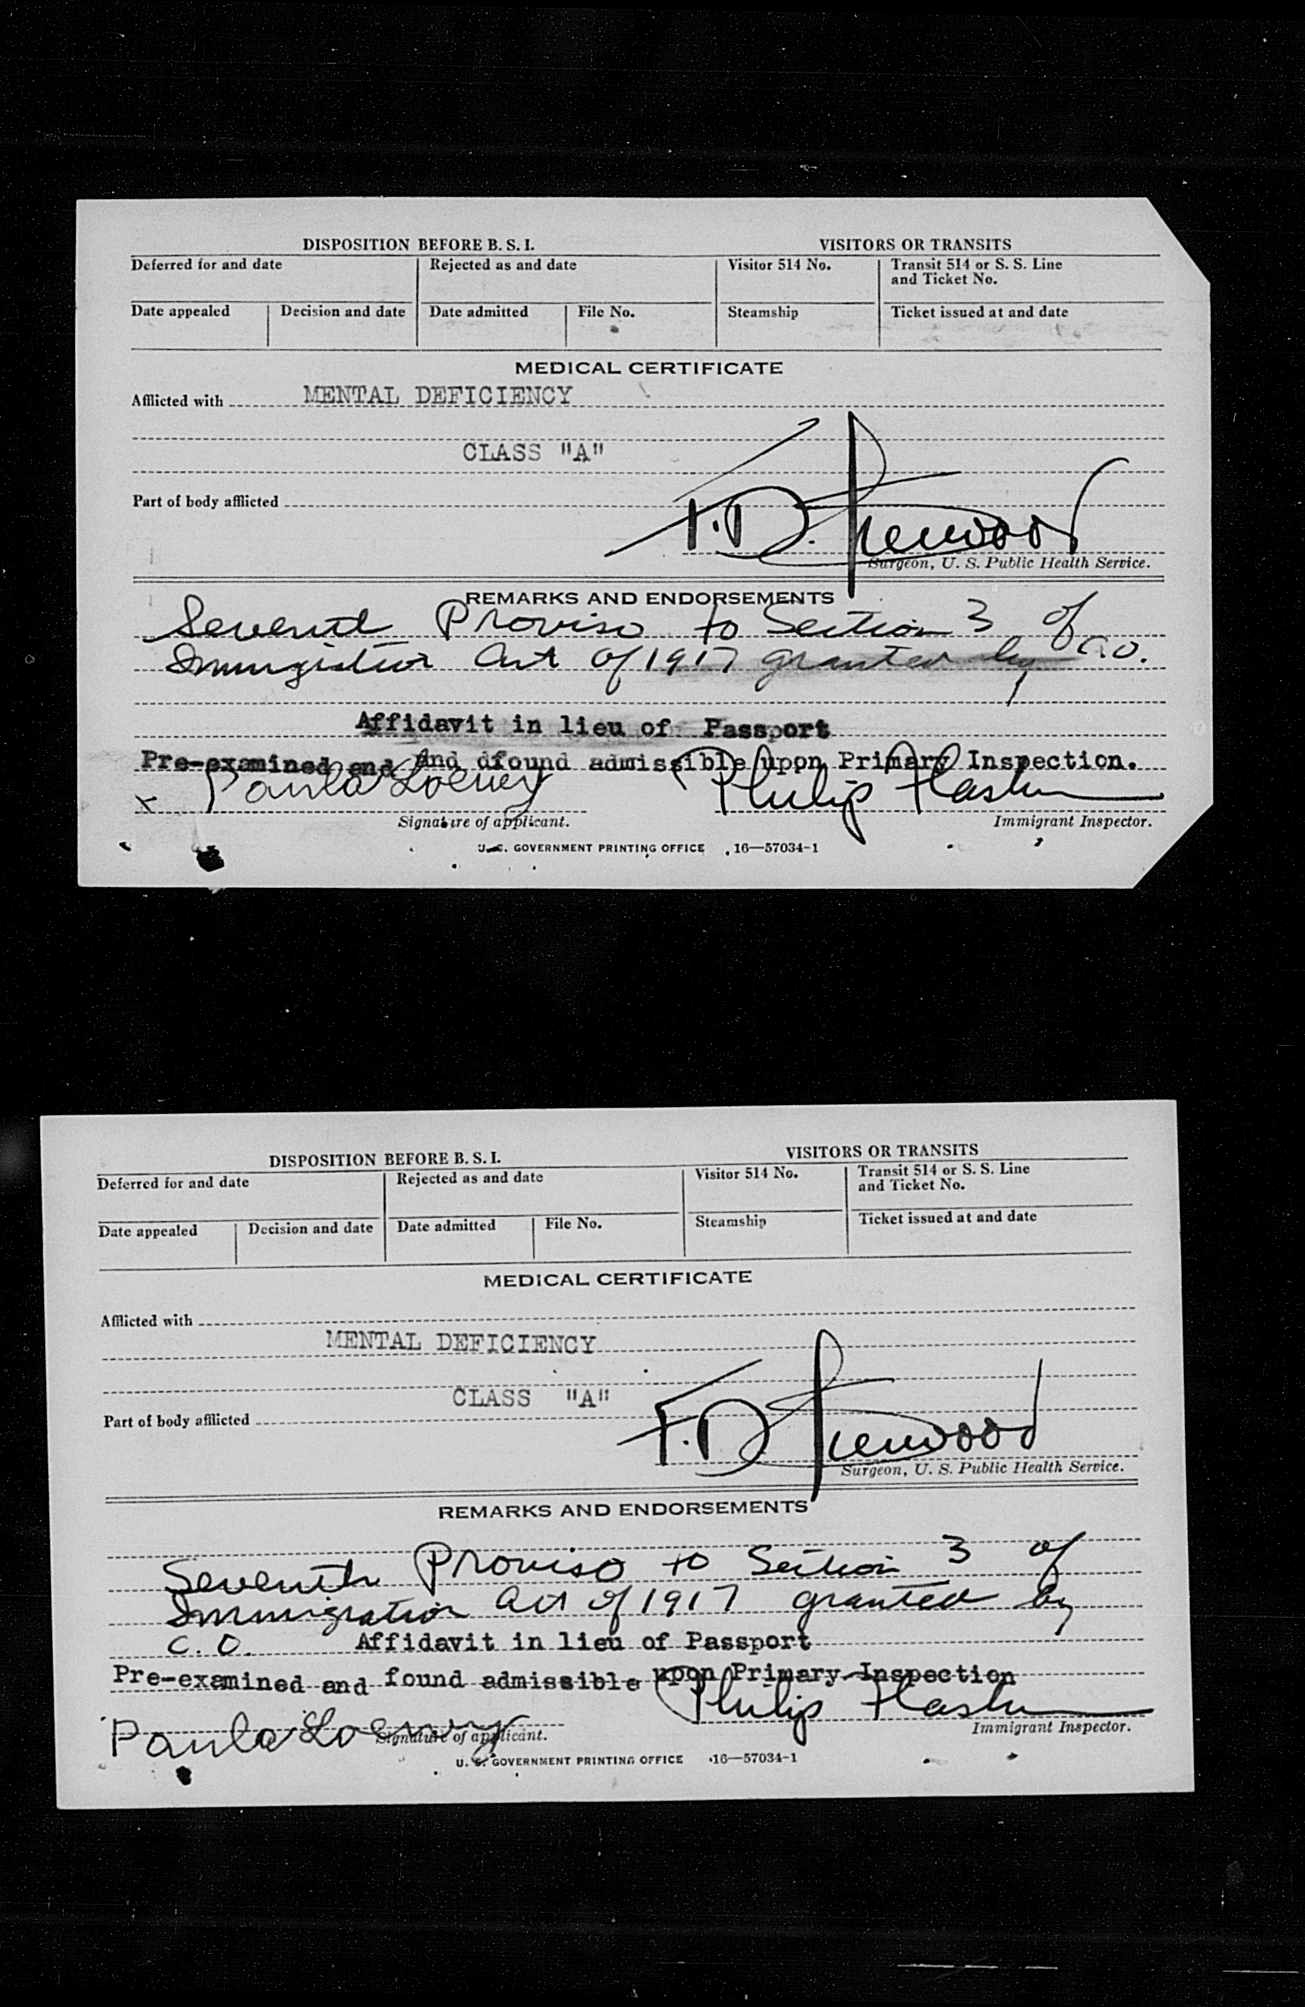 DISPOSITION BEFORE B. S. I.
VISITORS OR TRANSITS
Deferred for and date
Rejected as and date
Visitor 514 No.
Transit 514 or S. S. Line
and Ticket No.
Date appealed
Decision and date
Date admitted
File No.
Steamship
Ticket issued at and date
MEDICAL CERTIFICATE
Afflicted with MENTAL DEFICIENCY
CLASS "A"
Part of body afflicted
Surgeon, U. S. Public Health Service.
REMARKS AND ENDORSEMENTS
Seventh Proviso to Section 3 of
Immigration Act of 1917 granted by C.O.
Affidavit in lieu of Passport
Pre-examined and And dfound admissible upon Primary Inspection.
x Paula Loewy Philip
Signature of applicant.
Immigrant Inspector.
U. S. GOVERNMENT PRINTING OFFICE 16—57034-1
DISPOSITION BEFORE B. S. I.
VISITORS OR TRANSITS
Deferred for and date
Rejected as and date
Visitor 514 No.
Transit 514 or S. S. Line
and Ticket No.
Date appealed
Decision and date
Date admitted
File No.
Steamship
Ticket issued at and date
MEDICAL CERTIFICATE
Afflicted with
MENTAL DEFICIENCY
CLASS "A"
Part of body afflicted
Surgeon, U. S. Public Health Service.
REMARKS AND ENDORSEMENTS
Seventh Proviso to Section 3 of
Immigration Act of 1917 granted by
C. O. Affidavit in lieu of Passport
Pre-examined and found admissible upon Primary Inspection
Paula Loewy Philip
Signature of applicant.
Immigrant Inspector.
U. S. GOVERNMENT PRINTING OFFICE 16—57034-1